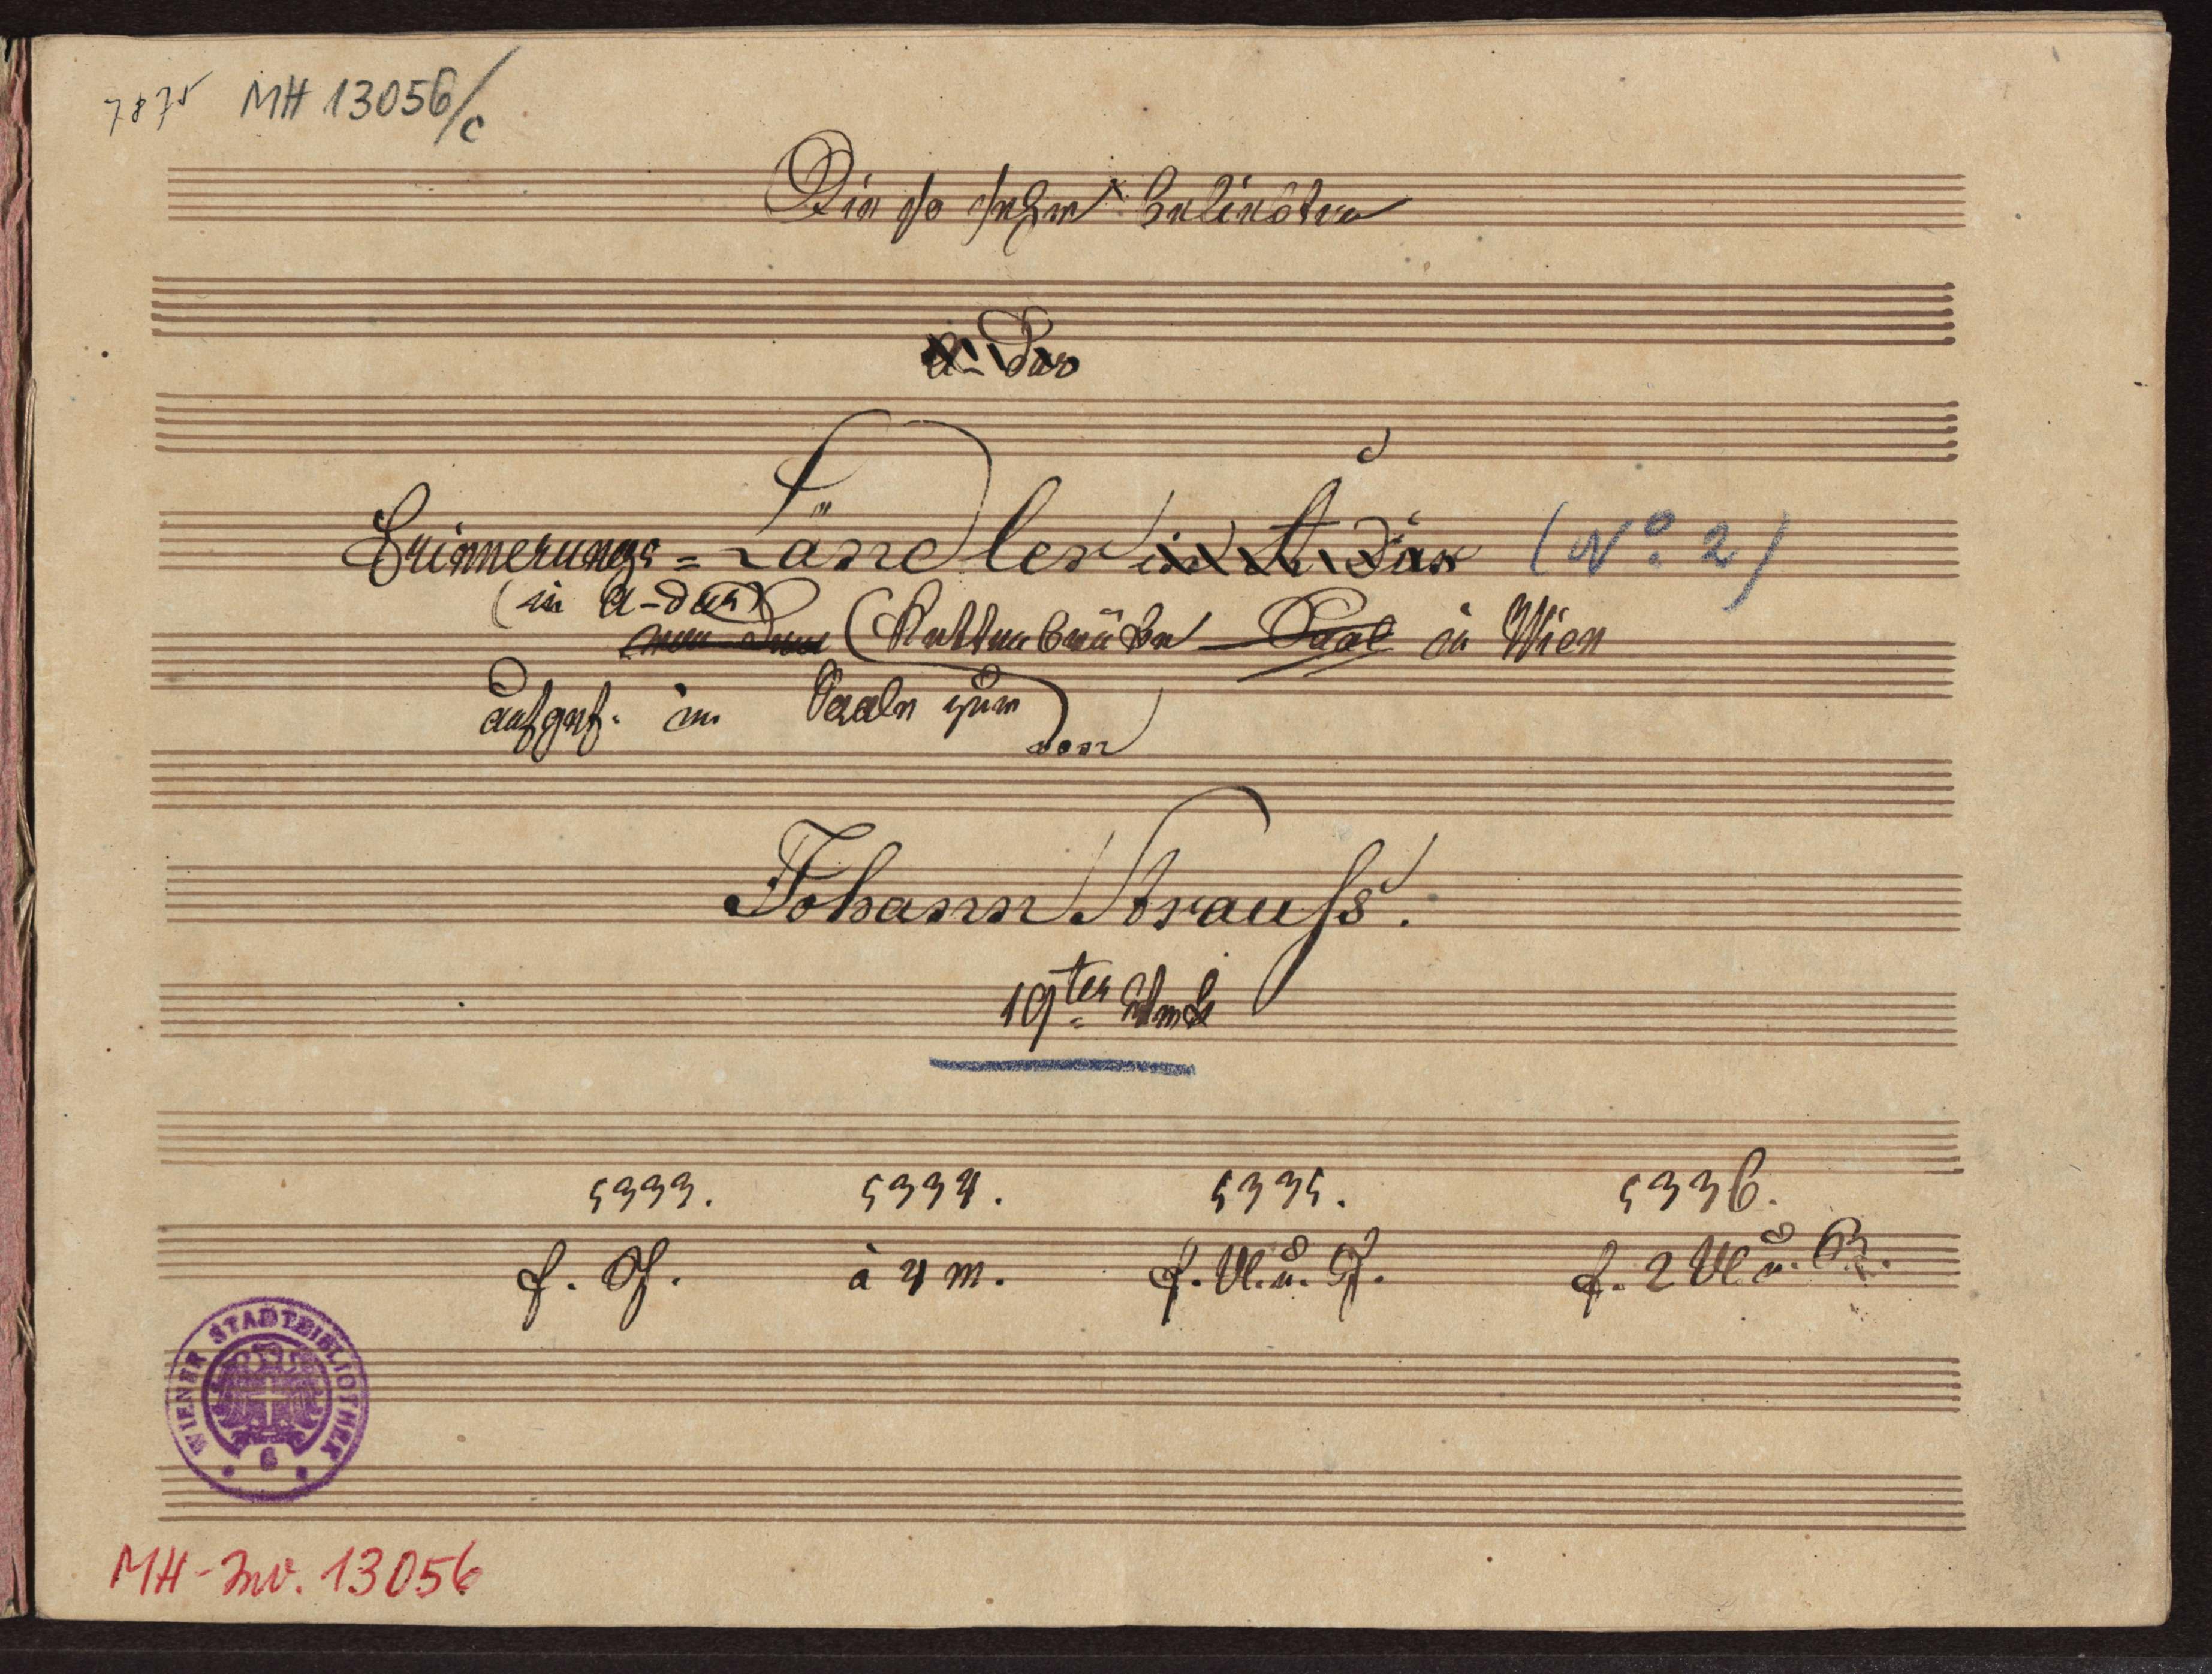 7875 MH 13056/c
Die so sehr beliebten
A-Dur
Erinnerungs=Ländler in A Dur (No. 2)
(in A-dur)
Kettenbrücke Saal in Wien
aufgef. im Saale zur
von
Johann Strauss.
19ter Werk
5333. 5334. 5335. 5336.
f. Pf. à 4 m. f. Vl. u. Pf. f. 2 Vl. u. B.
WIENER STADTBIBLIOTHEK
MH-Inv. 13056